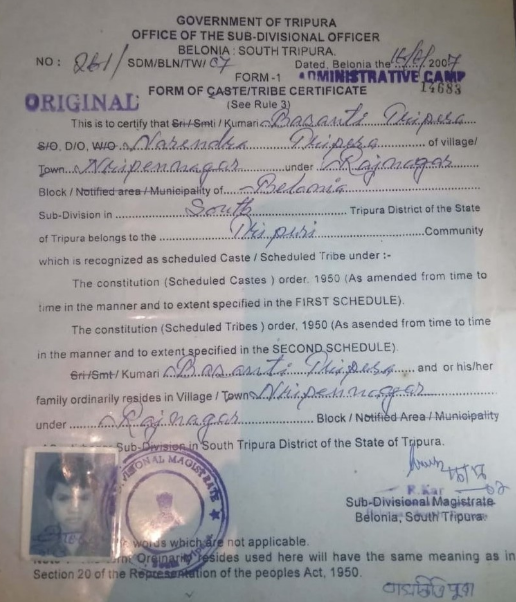 GOVERNMENT OF TRIPURA
OFFICE OF THE SUB-DIVISIONAL OFFICER
BELONIA : SOUTH TRIPURA.
NO : 261/ SDM/BLN/TW/ 07 Dated, Belonia the 16/6/2007
FORM -1 ADMINISTRATIVE CAMP
ORIGINAL FORM OF CASTE/TRIBE CERTIFICATE 14683
(See Rule 3)
This is to certify that Sri / Smti / Kumari Basanti Tripura
S/O, D/O, W/O Narendra Tripura of village/
Town Nripennagar under Rajnagar
Block / Notified area / Municipality of Belonia
Sub-Division in South Tripura District of the State
of Tripura belongs to the Tripuri Community
which is recognized as scheduled Caste / Scheduled Tribe under :-
The constitution (Scheduled Castes ) order, 1950 (As amended from time to
time in the manner and to extent specified in the FIRST SCHEDULE).
The constitution (Scheduled Tribes ) order, 1950 (As asended from time to time
in the manner and to extent specified in the SECOND SCHEDULE).
Sri /Smt / Kumari Basanti Tripura and or his/her
family ordinarily resides in Village / Town Nripennagar
under Rajnagar Block / Notified Area / Municipality
Sub-Division in South Tripura District of the State of Tripura.
SUB-DIVISIONAL MAGISTRATE
R.Kar
Sub-Divisional Magistrate
Belonia, South Tripura
words which are not applicable.
Ordinarily resides used here will have the same meaning as in
Section 20 of the Representation of the peoples Act, 1950.